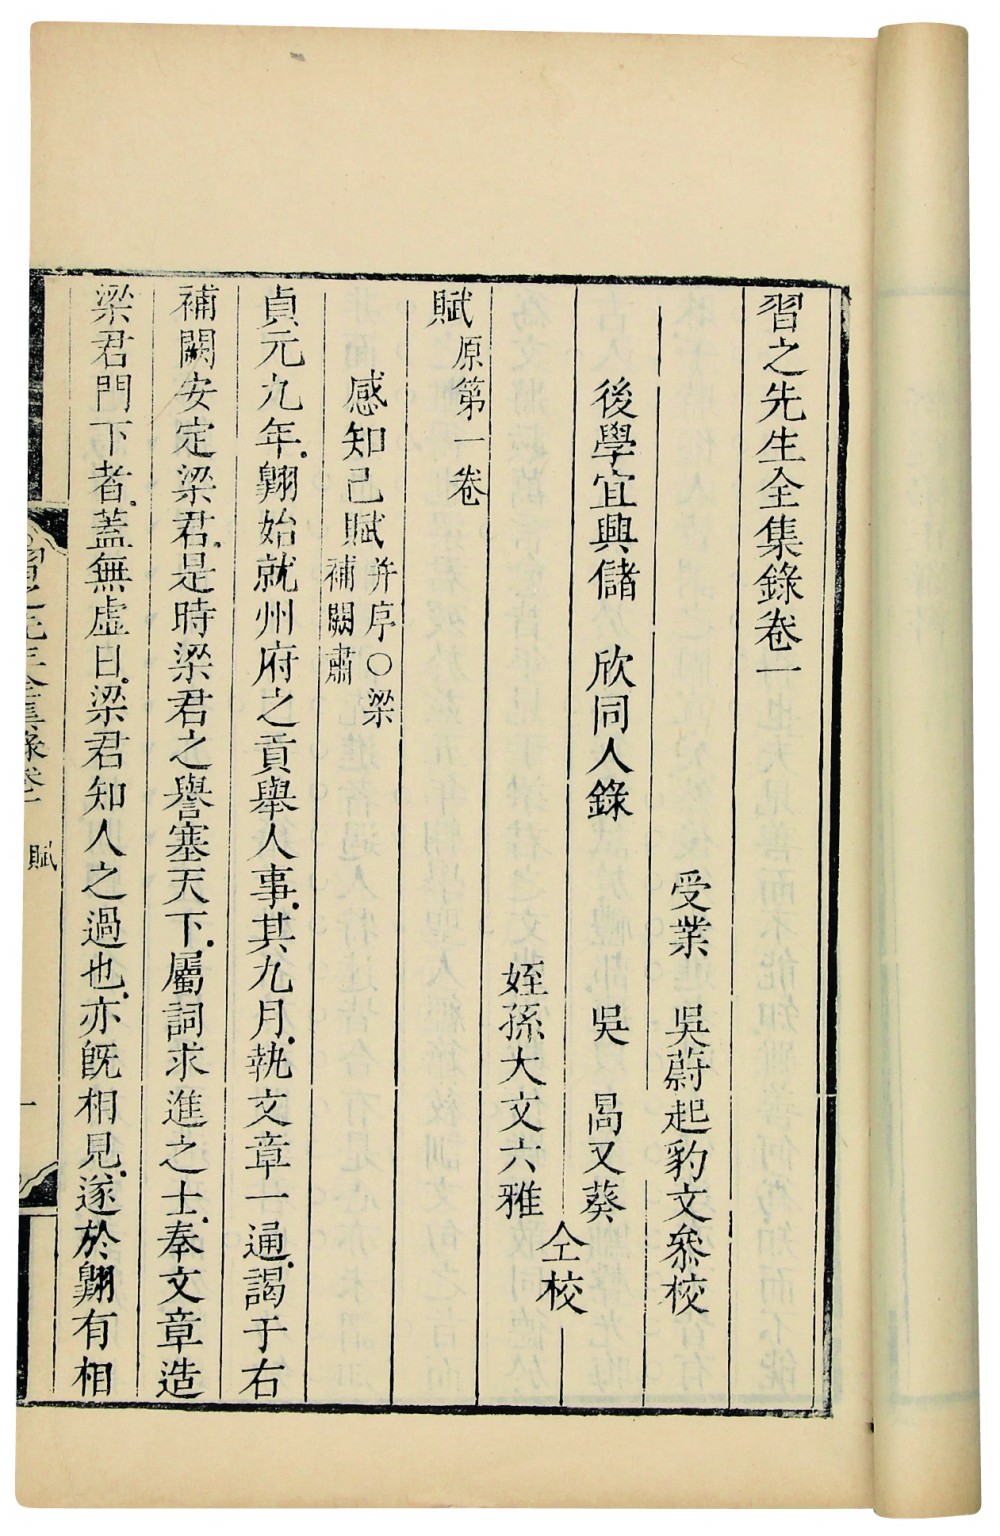 習之先生全集錄卷一
受業 吳蔚起豹文叅校
後學宜興儲 欣同人錄 吳 昺又葵
姪孫大文六雅
仝校
賦原第一卷
感知己賦并序○梁補闕肅
貞元九年翺始就州府之貢舉人事其九月執文章一通謁于右
補闕安定梁君是時梁君之譽塞天下屬詞求進之士奉文章造
梁君門下者蓋無虛日梁君知人之過也亦旣相見遂於翺有相
習之先生全集錄卷一 賦 一